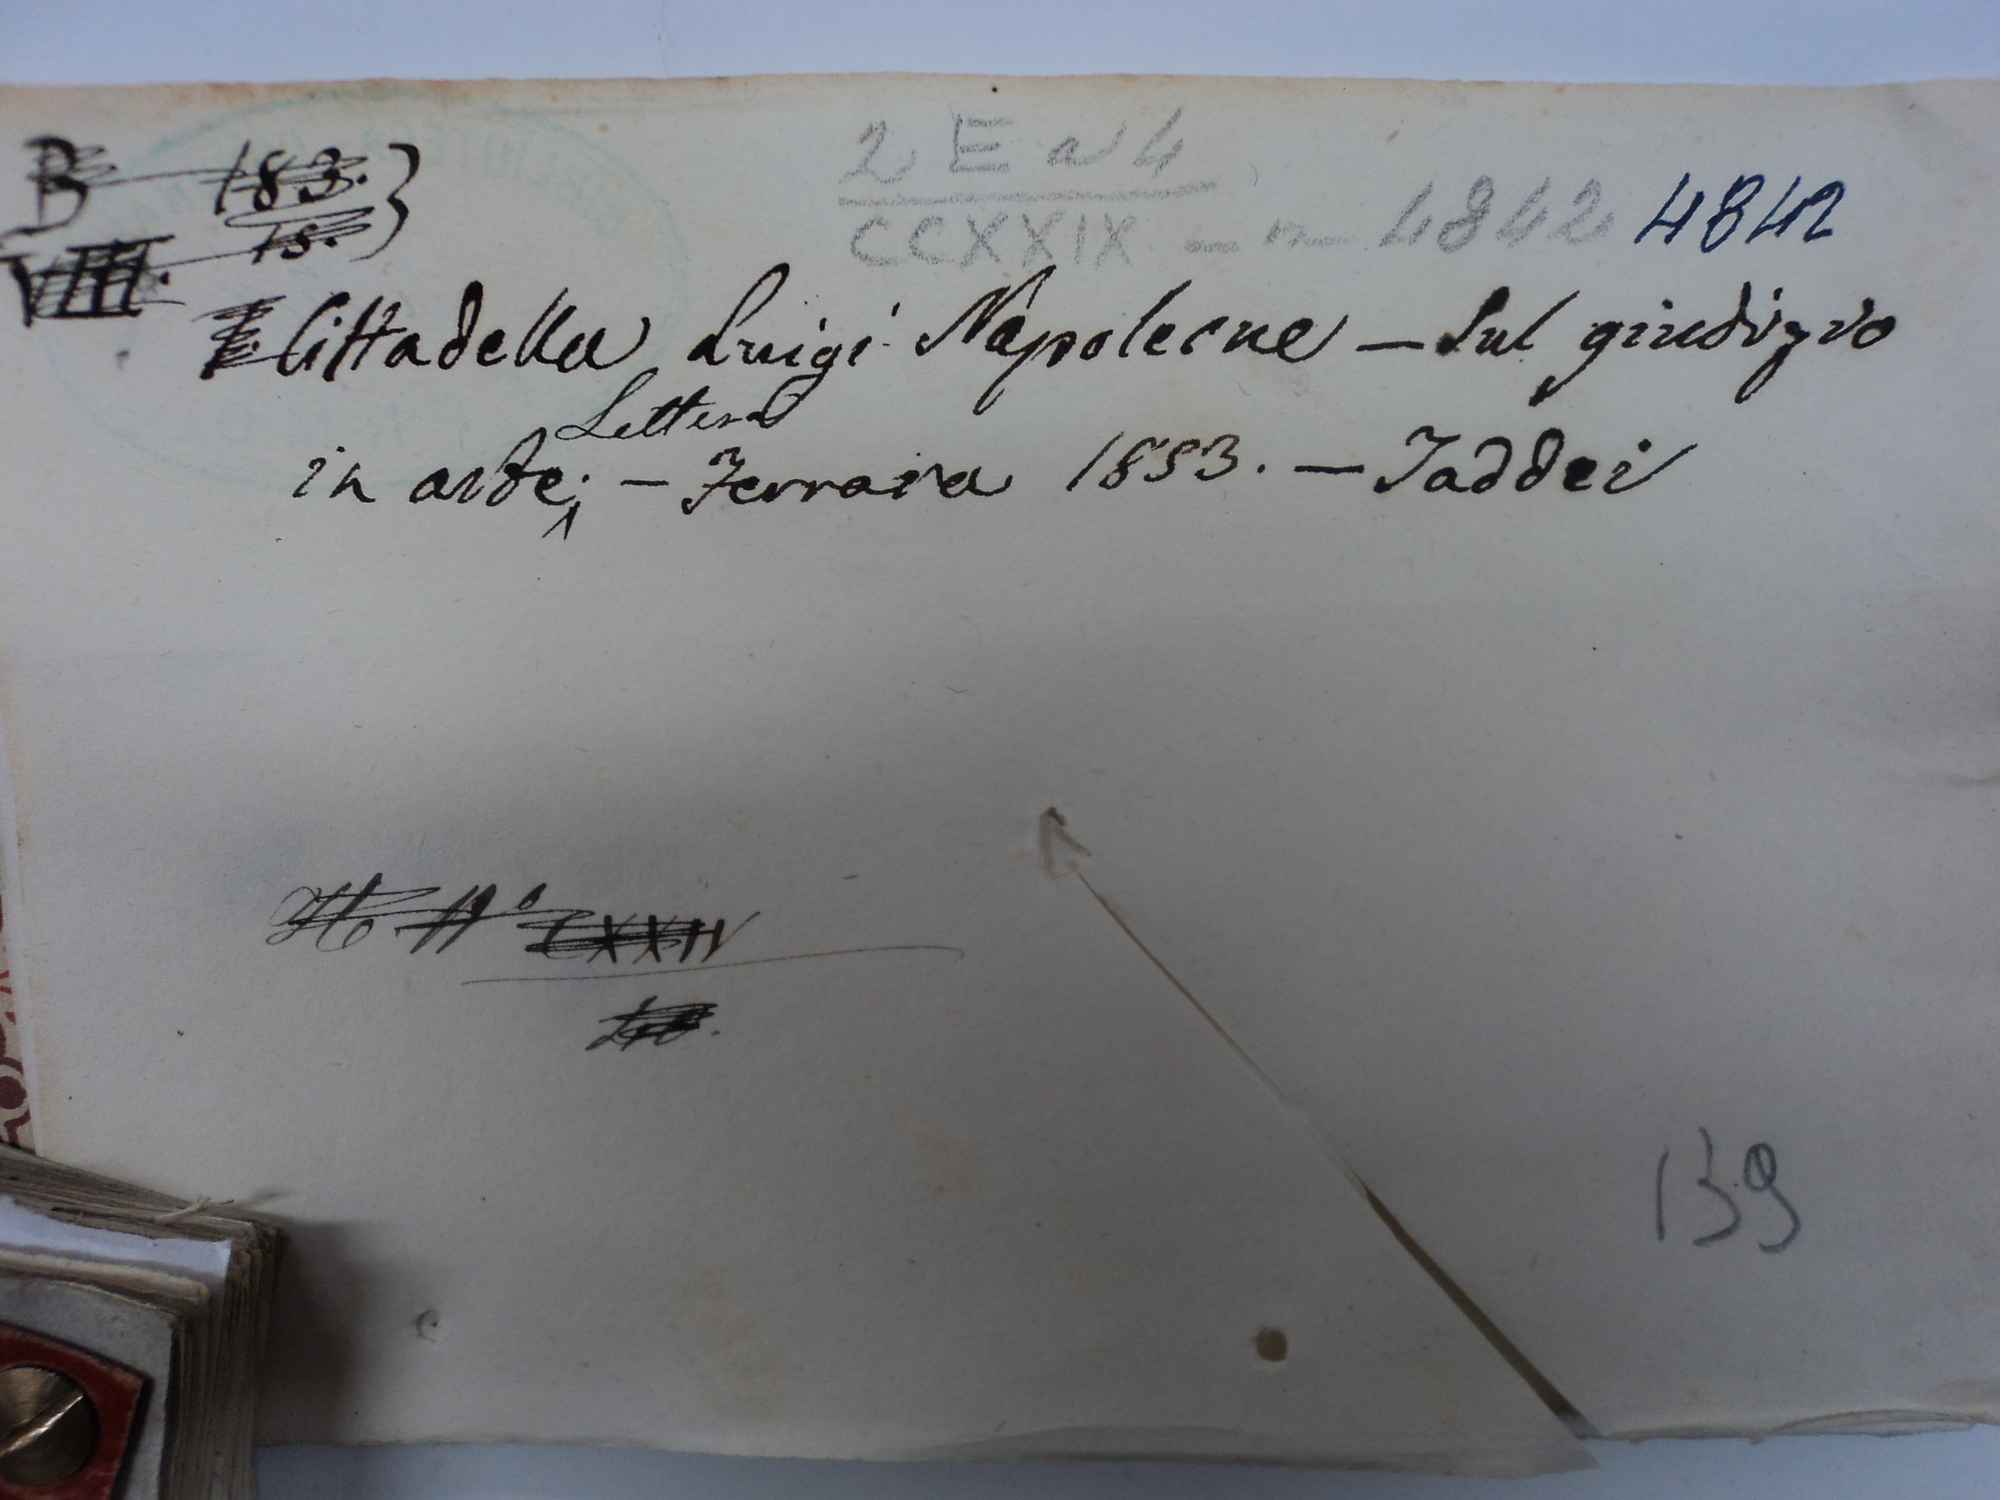 B 183. }
VIII. 15.
2 E a 4
CCXXIX - n - 4842 4842
Cittadella Luigi Napoleone - Sul giudizio
Lettera
in arte; - Ferrara 1853. - Taddei
N° CXXIV
139